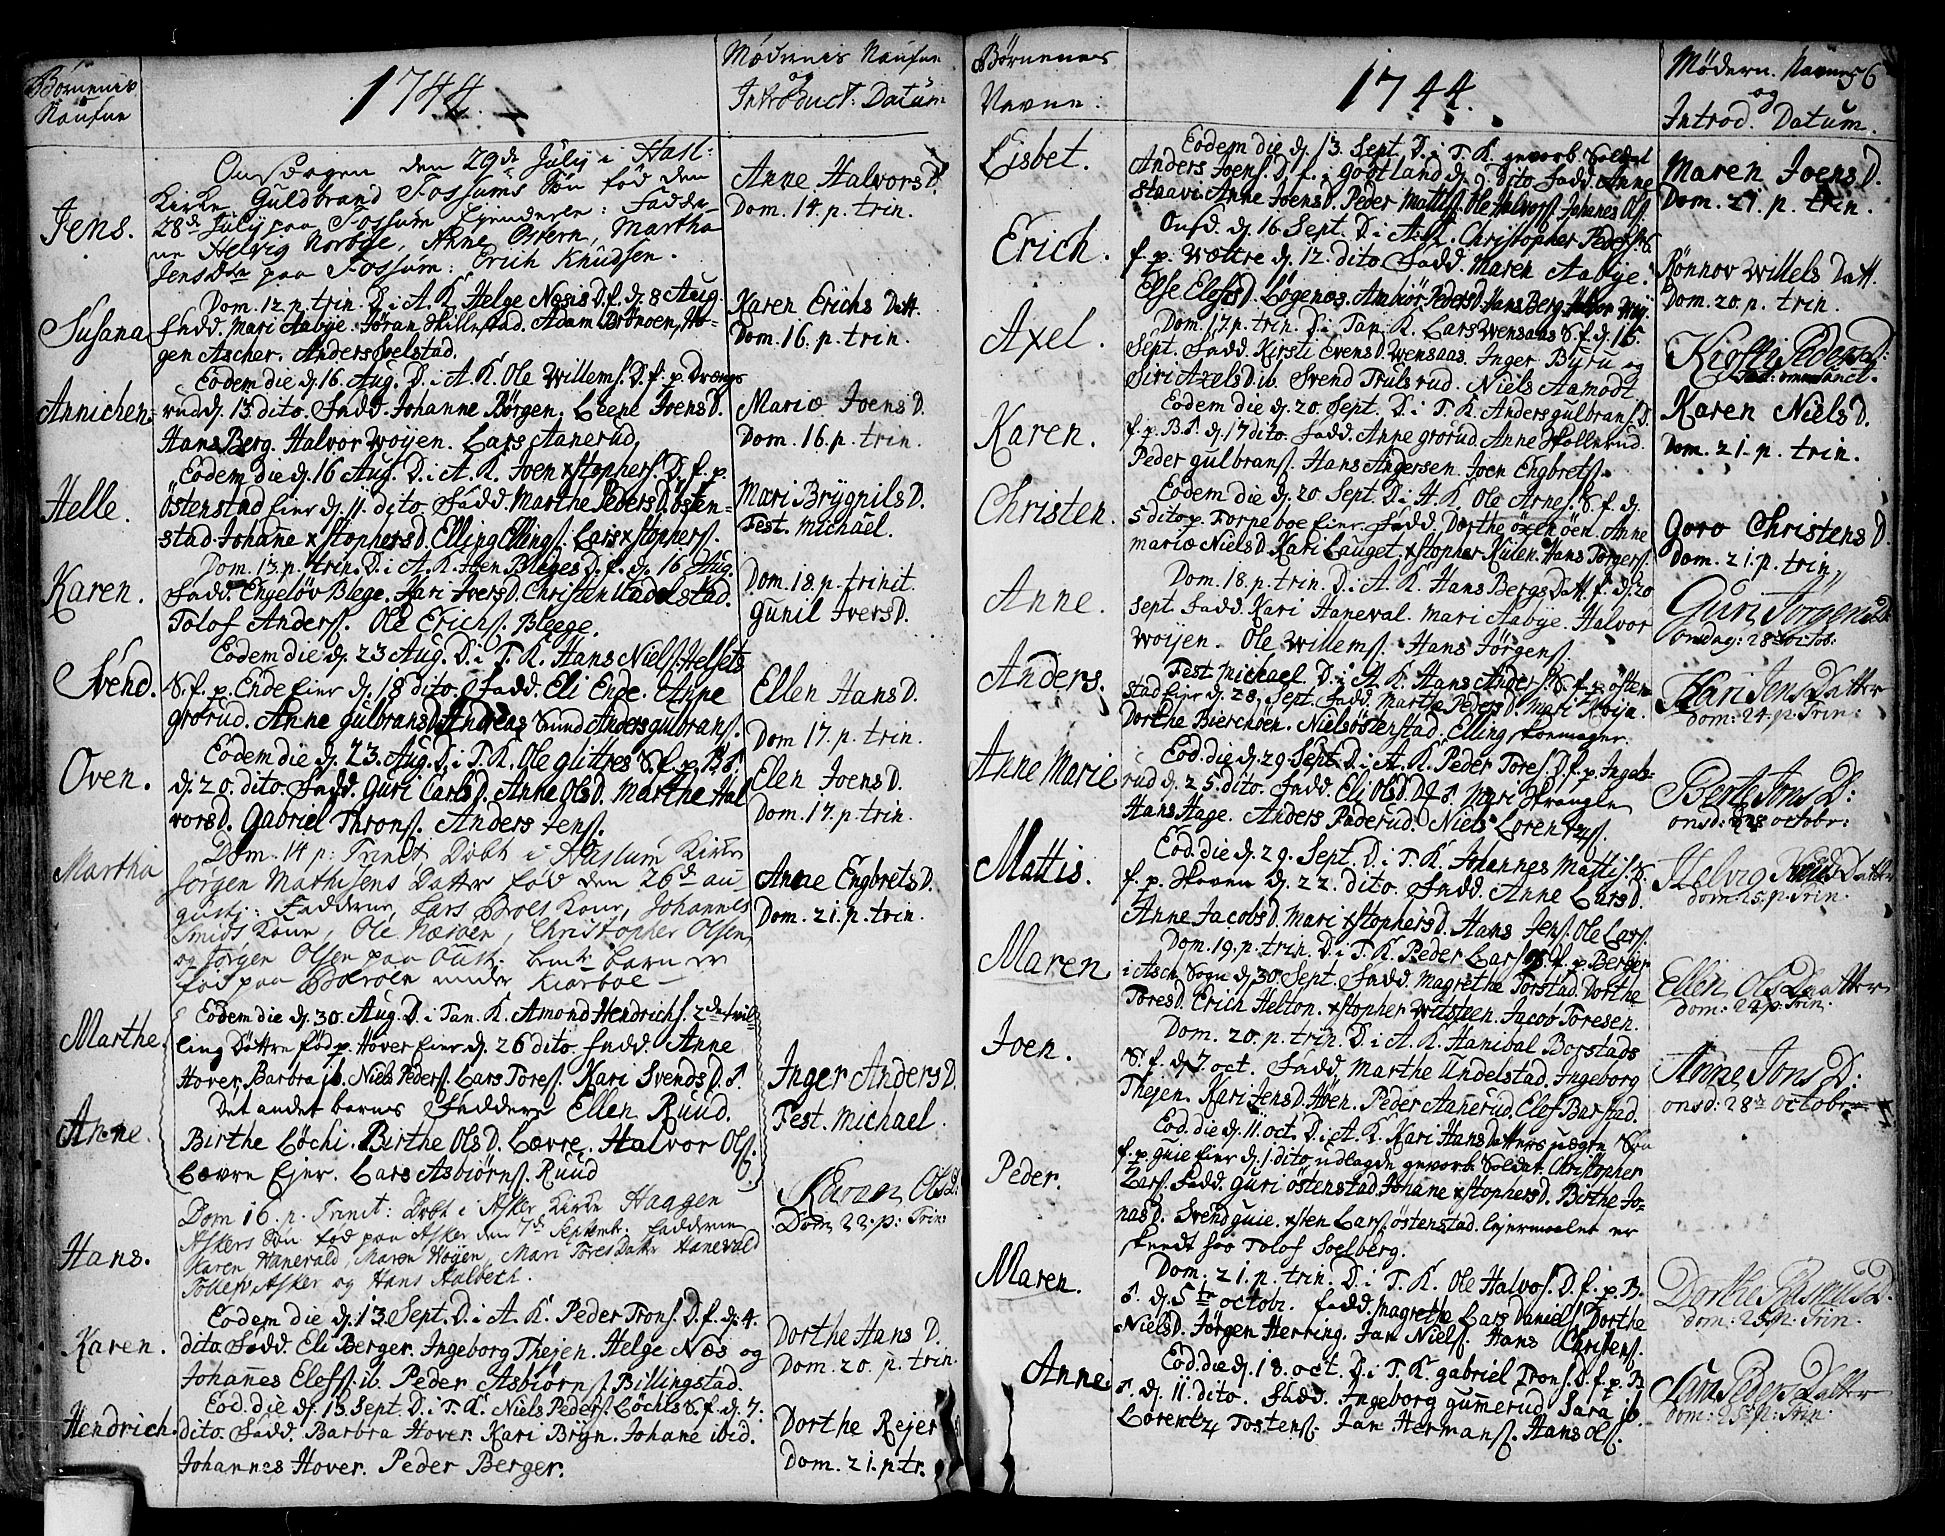 Børnenis
Naufne
1744.
Mødrenis Naufne
og
Introduct: Datum
Jens.
Onsdagen den 29de July i Hasl:
Kirke Guldbrand Fossums Søn fød den
28de July paa Fossum Eyendeele: Fadder-
ne Helvig Norbye, Anne Ostern, Martha
Jensdtr paa Fossum: Erich Knudsen.
Anne HalvorsD.
Dom. 14. p. trin.
Susana
Dom. 12. p. trin. D. i A. K. Helge Nesis D. f. d. 8 Aug.
Fadd. Mari Aabye. Jøran Skillestad. Adam Brønøen, Ha-
gen Ascher. Anders Soelstad.
Karen Erichs Datt.
Dom. 16. p. trin.
Annichen
Eodem die d. 16 Aug. D. i A. K. Ole Willems. D. f. p. Drengs
rud d. 13. dito. Fadd. Johanne Børgen. Leene JoensD.
Hans Berg. Halvor Woyen. Lars Aanerud.
Mariæ JoensD.
Dom. 16. p. trin.
Helle.
Eodem die d. 16 Aug. D. i A. K. Joen xstophers. D. f. p.
Östenstad Eier d. 11. dito. Fadd. Marthe PedersD. Östen-
stad. Johañe xstophersD. Elling Ellings. Lars xstophers.
Mari BrygnilsD.
Fest. Michael.
Karen.
Dom. 13. p. trin. D. i A. K. Joen Bleges D. f. d. 16 Aug.
Fadd. Engeløv Blege. Kari IversD. Christen Uadelstad.
Tolof Anders. Ole Erichs. Bleege.
Dom. 18. p. trinit.
Gunil IversD.
Svend.
Eodem die d. 23 Aug. D. i T. K. Hans Niels. Helsets
S. f. p. Ende Eier d. 18 dito. Fadd. Eli Ende. Anne
Grorud. Anne GulbransD. Andreas Sund Anders Gulbrans.
Ellen HansD.
Dom 17. p. trin.
Oven.
Eodem die d. 23. Aug. D. i T. K. Ole Glittres S. f. p. B.
d. 20. dito. Fadd. Guri CarlsD. Anne OlsD. Marthe Hal
vorsD. Gabriel Throns. Anders Jens.
Elen JoensD.
Dom. 17. p. trin.
Martha
Dom. 14 p: Trinit. Døbt i Haslum Kirke
Jørgen Mathisens Datter fød den 26de au
gusti: Fadderne, Lars Broes Kone, Johannes
Smids Kone, Ole Nærsøen, Christopher Olsen,
og Jørgen Olsen paa
fød paa under Kiørboe
Anne EngbretsD.
Dom. 21. p. trin.
Marthe.
Eodem die d. 30. Aug. D. i Tan. K. Amond Hendrichs. 2de tvil
ling Døttre fød p. Hover Eier d. 26 dito. Fadd. Anne
Hover. Barbra ib. Niels Peders. Lars Tores. Kari SvendsD.
Inger AndersD.
Fest. Michael.
Anne.
Det andet barnes Faddere Ellen Ruud.
Birthe Løchi. Birthe OlsD. Løvre. Halvor Ols.
Løvre Ejer. Lars Asbiørns. Ruud
Hans.
Dom 16. p. Trinit: Døbt i Asker Kirke Haagen
Askers Søn fød paa Asker den 7de Septemb: fadderne
Karen Hanevald, Maren Woyen, Mari ToresDattr Hanevald
Tollef Asker og Hans Aalbech.
Karen OlsD:
Dom. 22. p: Trin:
Karen.
Eodem die d. 13. Sept. D. i A. K. Peder Trons. D. f. d. 4.
dito. Fadd. Eli Berger. Ingeborg Thejen. Helge Næs og
Johañes Elefs. ib. Peder Asbiørns. Billingstad.
Dorthe Hans D.
Dom. 20. p. trin.
Hendrich.
Eod. die d. 13 Sept. D. i T. K. Niels Peders. Løchis S. f. d. 7.
dito. Fadd. Barbra Hover. Kari Bryn. Johañe ibid.
Johannes Hover. Peder Berger.
Dorthe Rejer
Dom. 21. p. tr.
Børnenes
Navne:
1744.
Mødern. Navne 56
og
Introd. Datum.
Lisbet.
Eodem die d. 13. Sept. D. i T. K. gevorb. Soldat
Anders Joens. D. f. i Godtland d. 9 dito. Fadd. Anne
Staavi. Anne JoensD. Peder Mattis. Ole Halvors. Johanes Ols.
Maren JoensD.
Dom. 21. p. trin.
Erich.
Onsd. d. 16 Sept. D. i A. K. Christopher Peders. S.
f. p. Wættre d. 12. dito. Fadd. Maren Aabye.
Else ElefsD. Løgenæs. Ambiør PedersD. Hans Berg. Halvor Woy
Rønnov Willels Datt.
Dom. 20. p. trin.
Axel.
Dom. 17. p. trin. D. i Tan. K. Lars Wensaas S. f. d. 16.
Sept. Fadd. Kirsti EvensD. Wensaas. Inger Byru og
Siri AxelsD. ib. Svend Trulsrud. Niels Aamodt.
Kiøsti PedersD:
Fest: omn: Sanct.
Karen.
Eodem die d. 20. Sept. D. i T. K. Anders Gulbrans. D.
f. p. B. d. 17 dito. Fadd. Anne Grorud. Anne Skollerud.
Peder Gulbrans. Hans Andersen. Joen Engbrets.
Karen NielsD.
Dom. 21. p. trin.
Christen.
Eodem die d. 20. Sept. D. i A. K. Ole Arnes. S. f. d.
5 dito p. Torpeboe Eier. Fadd. Dorthe Øxenöen. Anne
Mariæ NielsD. Kari Lauget. xstopher Kulen. Hans Torgers.
Goro ChristensD.
Dom. 21. p. trin.
Anne.
Dom. 18. p. trin. D. i A. K. Hans Bergs Datt. f. d. 20
Sept. Fadd. Kari Haneval. Mari Aabye. Halvor
Woijen. Ole Willems. Hans Jörgens.
Guri JørgensD:
onsdag: 28de octob.
Anders.
Fest Michael. D. i A. K. Hans Anders. S. f. p. Östen
stad Eier d. 28. Sept. Fadd. Marthe PedersD. Mari Woije.
Dorthe Bierchöen. Niels Östenstad. Elling Skoemager.
Kari JensDatter
dom: 24. p. Trin:
Anne Marie
Eod. die d. 29. Sept. D. i A. K. Peder Tores D. f. p. Ingelz-
rud d. 25. dito. Fadd. Eli OlsD. Mari Skrangle
Hans Hage. Anders Paderud. Niels Lorentzs.
Berte JonsD:
onsd: 28 octobr:
Mattis.
Eod. die d. 29. Sept. D. i T. K. Johannes Mattis. S.
f. p. Skoven d. 22. dito. Fadd. Anne LarsD.
Anne JacobsD. Mari xstophersD. Hans Jens. Ole Lars.
Helvig Datter
dom 25. p. Trin.
Maren
Dom. 19. p. trin. D. i T. K. Peder Lars. D. f. p. Berger
i Asch. Sogn d. 30. Sept. Fadd. Magrethe Torstad. Dorthe
ToresD. Erich Helton. xstopher Witsteen. Jacob Toresen.
Ellen OlsDaatter
dom: 22. p. Trin.
Joen.
Dom. 20. p. trin. D. i A. K. Hanibal Borstads
S. f. d. 7. oct. Fadd. Marthe Undelstad. Ingeborg
Thejen. Kari JensD. Høen. Peder Aanerud. Elef Burstad.
Anne JonsD:
onsd: 28de octobr:
Peder.
Eod. die d. 11. oct. D. i A. K. Kari HansDatters uægte Søn
f. p. Guie Eier d. 1. dito udlagde gevorb. Soldat. Christopher
Lars. Fadd. Guri Östenstad. Johañe xstophersD. Birthe Jo-
nasD. Svend Guie. xsten Lars. Östenstad. Leyermaalet er
skeedt hos Tolof Soelberg.
Maren.
Dom. 21. p. trin. D. i T. K. Ole Halvos. D. f. p. B.
d. 5te octobr. Fadd. Magrethe Lars Daniels. Dorthe
NielsD. Jörgen Herring. Jan Niels. Hans Christens.
Dorthe RasmusD.
dom: 25. p. Trin.
Anne.
Eod. die d. 18. oct. D. i T. K. Gabriel Trons. D. f. p. B
d. 11. dito. Fadd. Ingeborg Gum̃erud. Sara ib.
Lorentz Tostens. Jan Hermans. Hans Ols.
Sara PedersDatter
dom: 25. p: Trin.